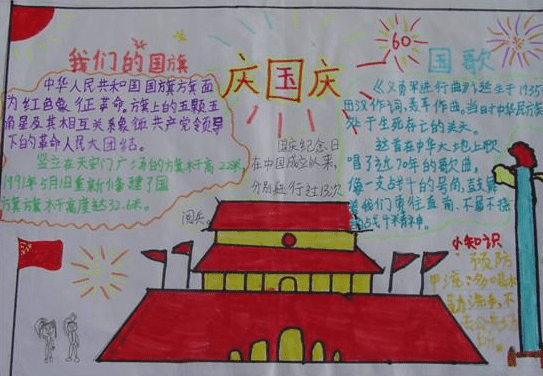 庆国庆
60
我们的国旗
中华人民共和国国旗旗面
为红色象征革命,旗上的五颗五
角星及其相互关系象征共产党领导
下的革命人民大团结。
竖立在天安门广场的方旗杆高22米,
1991年5月1日重新修建了国
旗方旗杆高度达32.6米。
国庆纪念日
在中国成立以来,
分别进行过13次
阅兵。
国歌
《义勇军进行曲》诞生于1935
田汉作词,聂耳作曲。当时中华民族
处于生死存亡的关头。
这首在中华大地上歌
唱了近70年的歌曲,
像一支战斗的号角,鼓舞
着我们勇往直前、不屈不挠
战斗精神。
小知识
预防
甲流:多喝水
勤洗手、不
去公共场